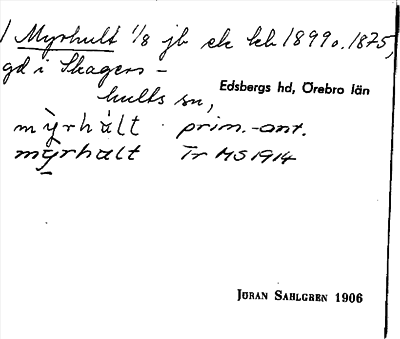 Myrhult 1/8 jb ek kb 1899 o. 1875,
gd i Skagers-
hults sn,
Edsbergs hd, Örebro län
mỳrhàlt prim.-ant.
mỳrhalt Tr MS 1914
JÖRAN SAHLGREN 1906